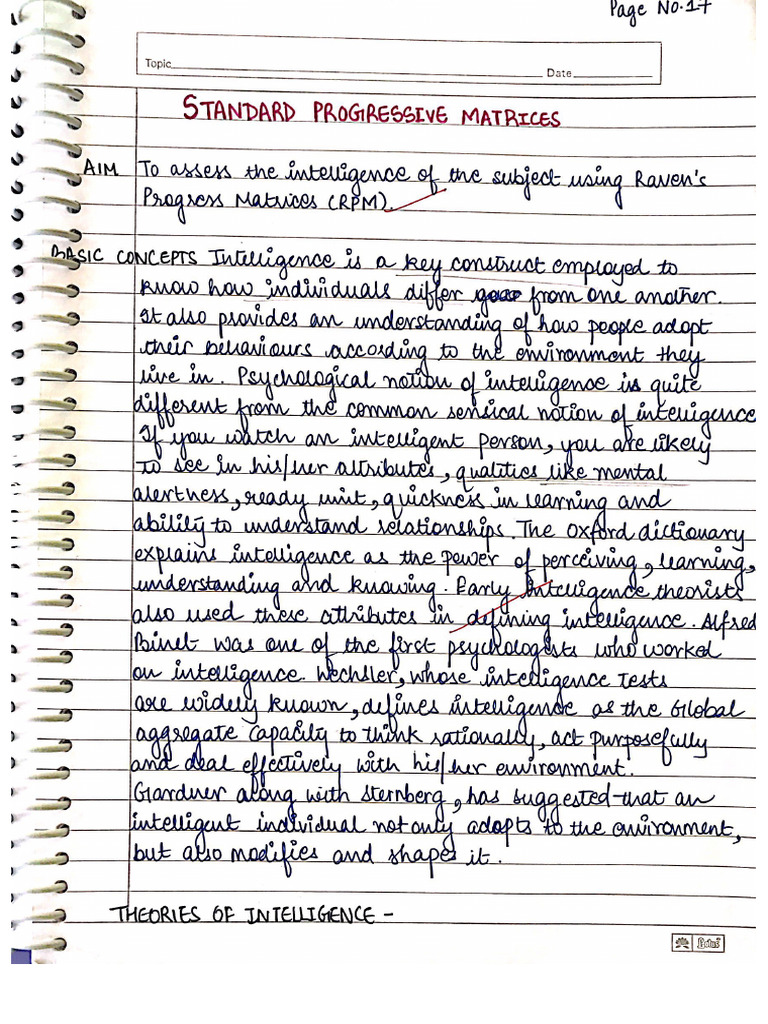 Page No.17
Topic
Date
STANDARD PROGRESSIVE MATRICES
AIM To assess the intelligence of the subject using Raven's
Progress Matrices (RPM).
BASIC CONCEPTS Intelligence is a key construct employed to
know how individuals differ from one another.
It also provides an understanding of how people adopt
their behaviours according to the environment they
live in. Psychological notion of intelligence is quite
different from the common sensical notion of intelligence
If you watch an intelligent person, you are likely
to see in his/her attributes, qualities like mental
alertness, ready wit, quickness in learning and
ability to understand relationships. The Oxford dictionary
explains intelligence as the power of perceiving, learning,
understanding and knowing. Early Intelligence theorists
also used these attributes in defining intelligence. Alfred
Binet was one of the first psychologists who worked
on intelligence. Wechsler, whose intelligence tests
are widely known, defines intelligence as the Global
aggregate capacity to think rationally, act purposefully
and deal effectively with his/her environment.
Gardner along with Sternberg, has suggested that an
intelligent individual not only adopts to the environment,
but also modifies and shapes it.
THEORIES OF INTELLIGENCE -